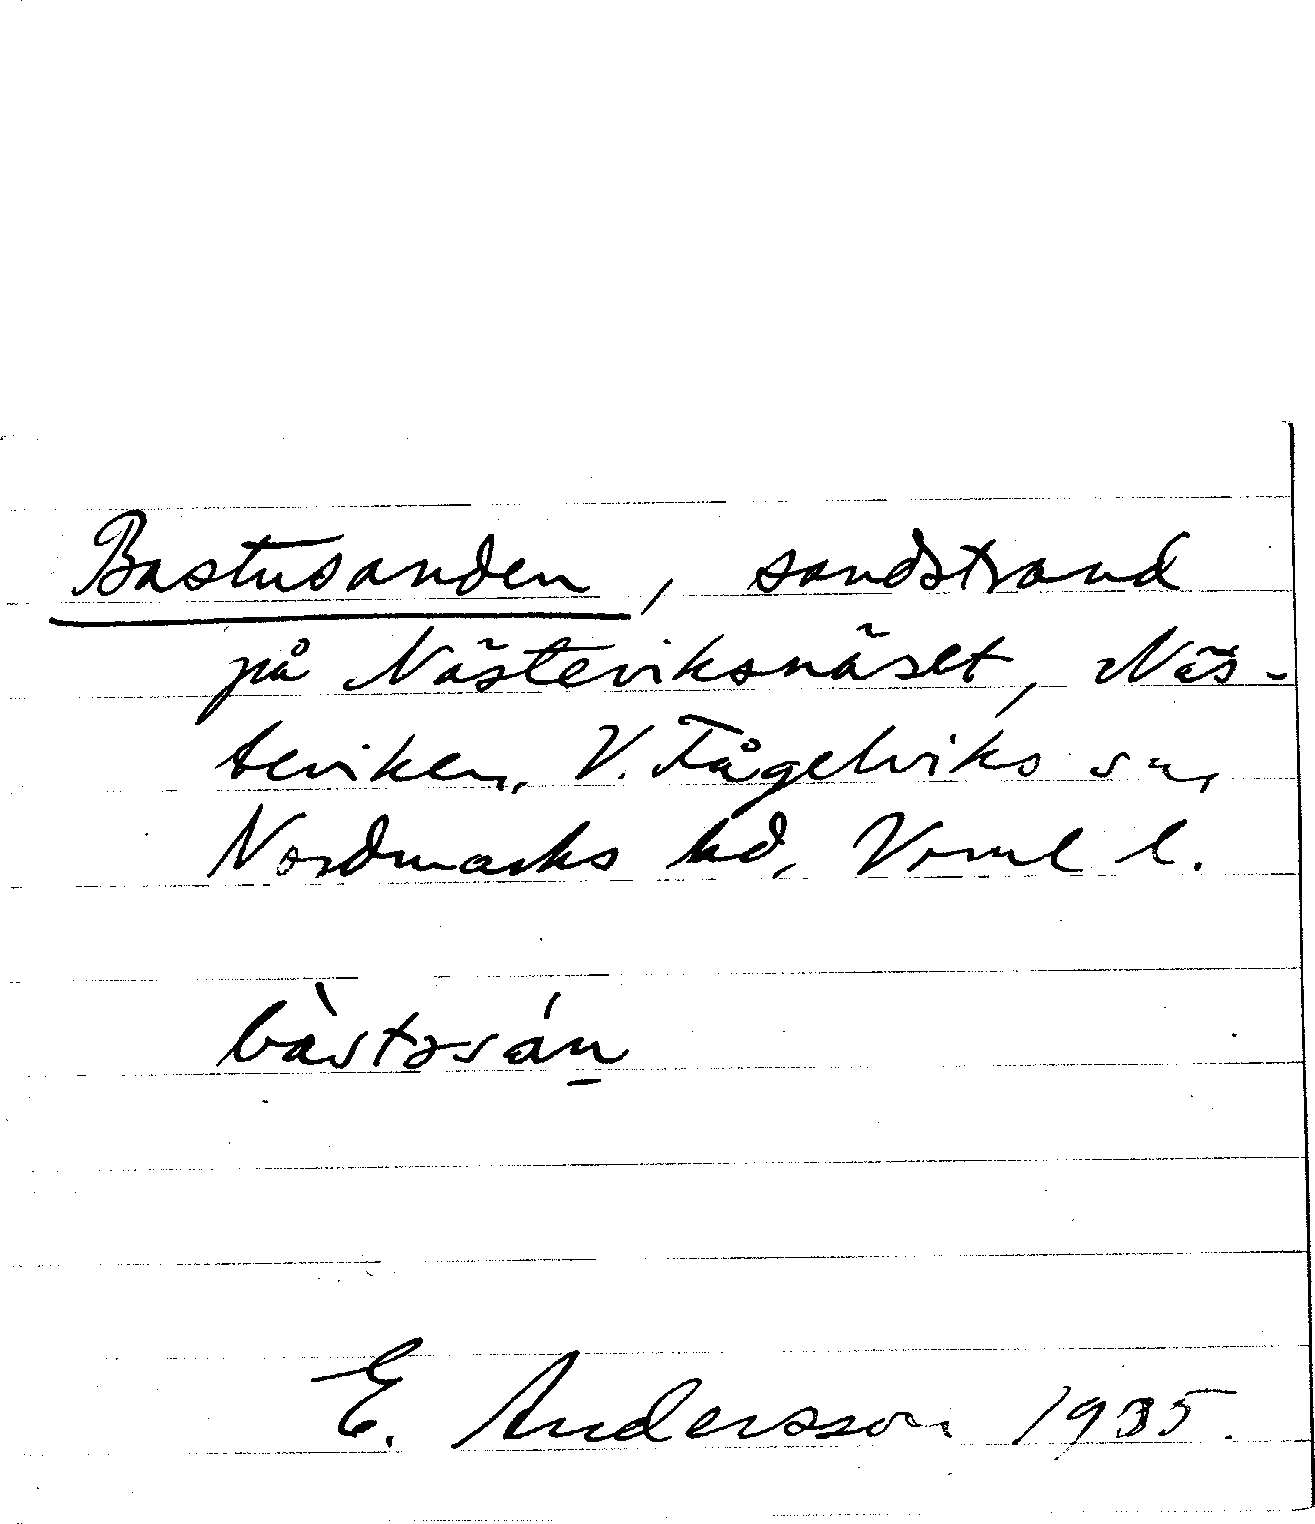 Bastusanden, sandstrand
på Nästeviksnäset, Näs-
teviken, V. Fågelviks sn,
Nordmarks hd, Vrml l.
bàstosán̲
E. Andersson 1935.